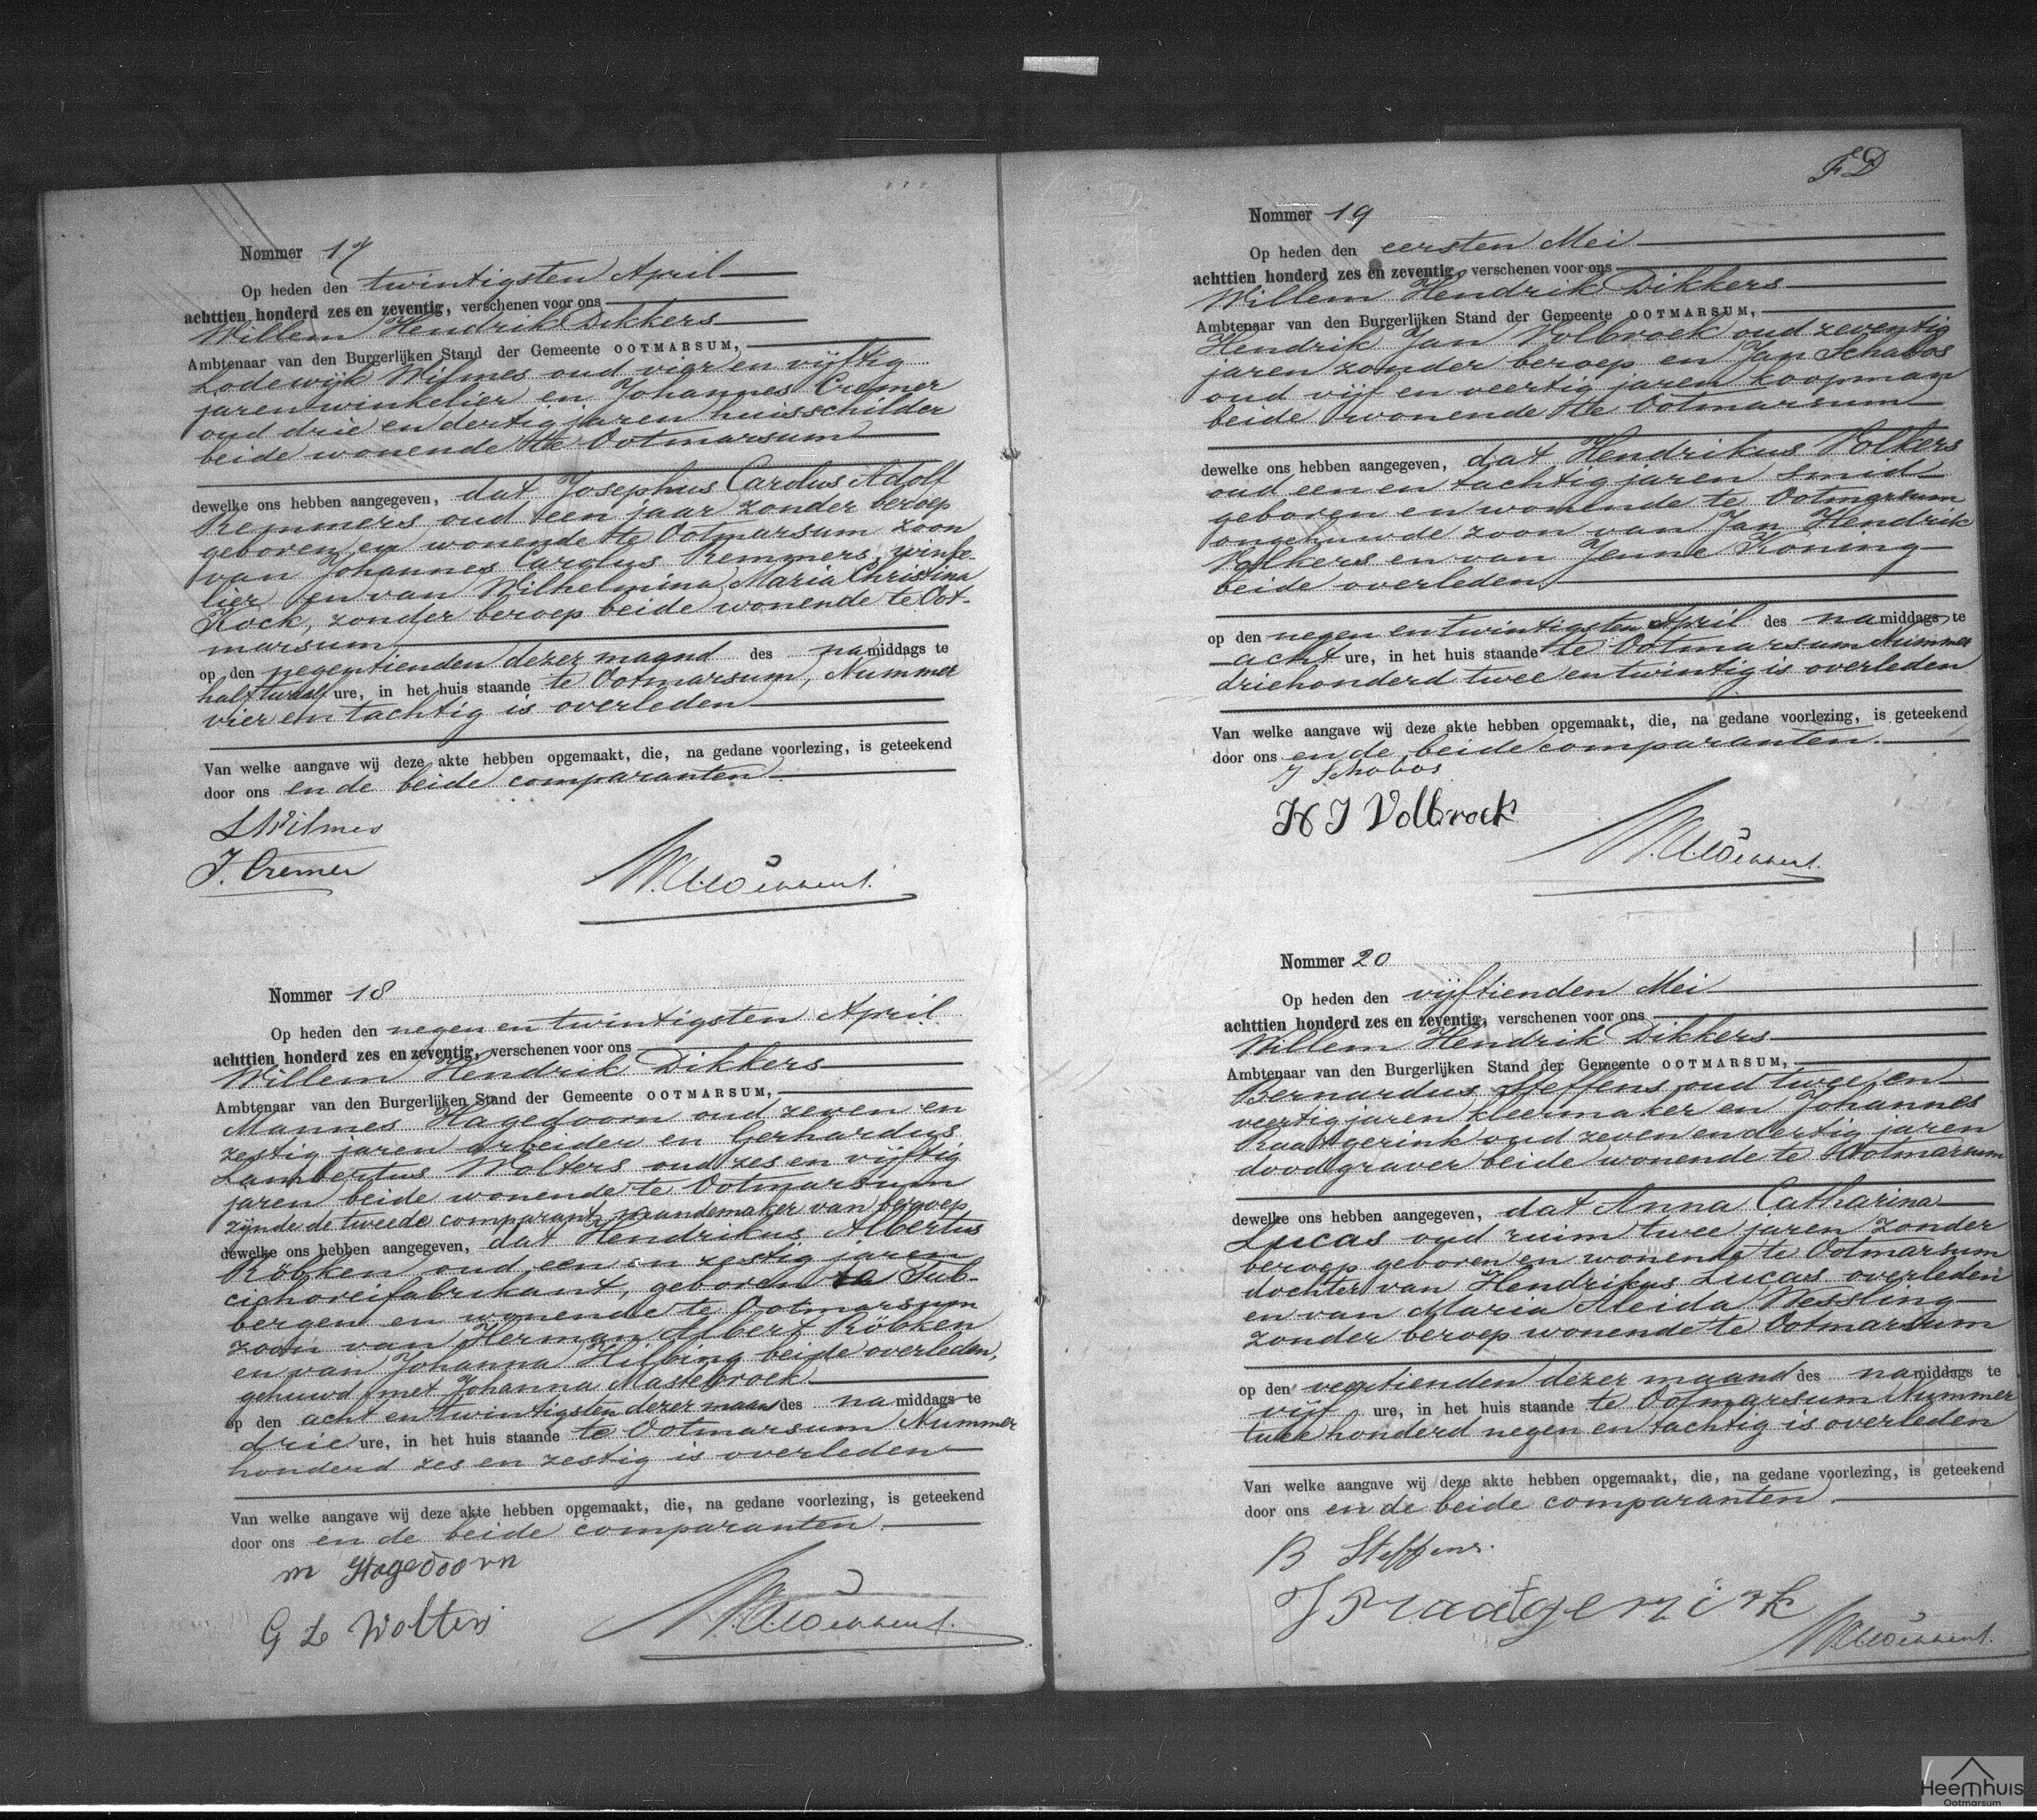 Nommer 17
Op heden den twintigsten April
achttien honderd zes en zeventig, verschenen voor ons
Willem Hendrik Dikkers
Ambtenaar van den Burgerlijken Stand der Gemeente OOTMARSUM,
Lodewijk Wilmes oud vier en vijftig
jaren winkelier en Johannes Cremer
oud drie en dertig jaren huisschilder
beide wonende te Ootmarsum
dewelke ons hebben aangegeven, dat Josephus Carolus Adolf
Remmers oud een jaar zonder beroep
geboren en wonende te Ootmarsum zoon
van Johannes Carolus Remmers, winke-
lier en van Wilhelmina Maria Christina
Kock, zonder beroep beide wonende te Oot-
marsum
op den negentienden dezer maand des namiddags te
half twaalf ure, in het huis staande te Ootmarsum, Nummer
vier en tachtig is overleden
Van welke aangave wij deze akte hebben opgemaakt, die, na gedane voorlezing, is geteekend
door ons en de beide comparanten
L Wilmes
J. Cremer
Nommer 18
Op heden den negen en twintigsten April
achttien honderd zes en zeventig, verschenen voor ons
Willem Hendrik Dikkers
Ambtenaar van den Burgerlijken Stand der Gemeente OOTMARSUM,
Mannes Hagedoorn oud zeven en
zestig jaren arbeider en Gerhardus
Lambertus Wolters oud zes en vijftig
jaren beide wonende te Ootmarsum
zijnde de tweede comparant mandemaker van beroep
dewelke ons hebben aangegeven, dat Hendrikus Albertus
Röbken oud een en zestig jaren
cichoreifabrikant, geboren te Tub-
bergen en wonende te Ootmarsum
zoon van Herman Albert Röbken
en van Johanna Hilbing beide overleden,
gehuwd met Johanna Mastebroek
op den acht en twintigsten dezer maand des namiddags te
drie ure, in het huis staande te Ootmarsum Nummer
honderd zes en zestig is overleden
Van welke aangave wij deze akte hebben opgemaakt, die, na gedane voorlezing, is geteekend
door ons en de beide comparanten
m Hagedoorn
G L Wolters
FD
Nommer 19
Op heden den eersten Mei
achttien honderd zes en zeventig, verschenen voor ons
Willem Hendrik Dikkers
Ambtenaar van den Burgerlijken Stand der Gemeente OOTMARSUM,
Hendrik Jan Volbroek oud zeventig
jaren zonder beroep en Jan Schabos
oud vijf en veertig jaren koopman
beide wonende te Ootmarsum
dewelke ons hebben aangegeven, dat Hendrikus Volkers
oud een en tachtig jaren smid
geboren en wonende te Ootmarsum
ongehuwde zoon van Jan Hendrik
Volkers en van Jenne Koning
beide overleden
op den negen en twintigsten April des namiddags te
acht ure, in het huis staande te Ootmarsum Nummer
driehonderd twee en twintig is overleden
Van welke aangave wij deze akte hebben opgemaakt, die, na gedane voorlezing, is geteekend
door ons en de beide comparanten.
J Schabos
H J Volbroek
Nommer 20
Op heden den vijftienden Mei
achttien honderd zes en zeventig, verschenen voor ons
Willem Hendrik Dikkers
Ambtenaar van den Burgerlijken Stand der Gemeente OOTMARSUM,
Bernardus Steffens oud twee en
veertig jaren kleermaker en Johannes
Raatgerink oud zeven en dertig jaren
doodgraver beide wonende te Ootmarsum
dewelke ons hebben aangegeven, dat Anna Catharina
Lucas oud ruim twee jaren zonder
beroep geboren en wonende te Ootmarsum
dochter van Hendrikus Lucas overleden
en van Maria Aleida Wessling
zonder beroep wonende te Ootmarsum
op den veertienden dezer maand des namiddags te
vijf ure, in het huis staande te Ootmarsum Nummer
twee honderd negen en tachtig is overleden
Van welke aangave wij deze akte hebben opgemaakt, die, na gedane voorlezing, is geteekend
door ons en de beide comparanten.
B Steffens.
J Raatgerink
Heemhuis
Ootmarsum